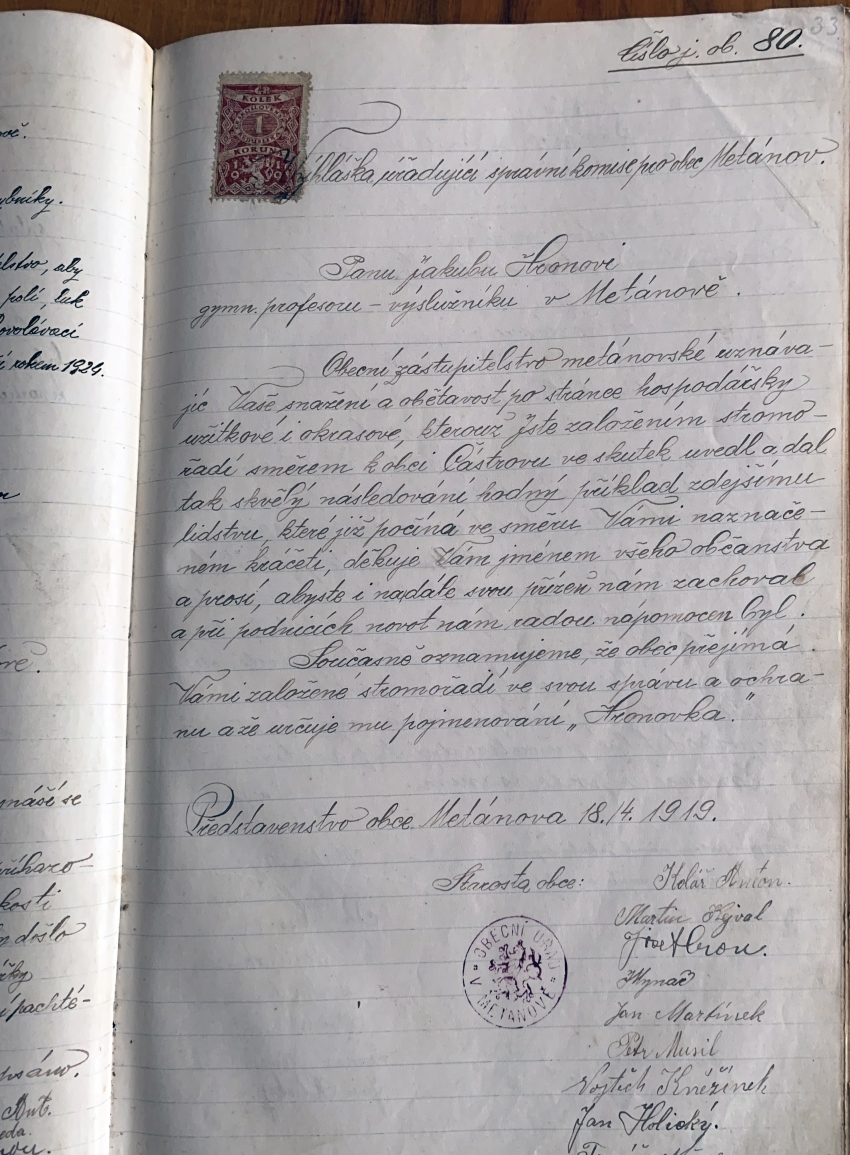 vě.
ybníky.
lstvo, aby
polí, luk
ovolávací
í rokem 1924.
náší se
příhazo-
kosti
došlo
í pachté-
psáno.
Ant.
33
Číslo j. ob. 80.
ČS
KOLEK
1
KORUNA
1919
Vyhláška úřadující správní komise pro obec Metánov.
Panu Jakubu Hronovi
gymn. profesoru – výslužníku v Metánově.
Obecní zástupitelstvo metánovské uznáva-
jíc Vaše snažení a obětavost po stránce hospodářsky
užitkové i okrasové, kterouž jste založením stromo-
řadí směrem k obci Částrovu ve skutek uvedl a dal
tak skvělý následování hodný příklad zdejšímu
lidstvu, které již počíná ve směru Vámi naznače-
ném kráčeti, děkuje Vám jménem všeho občanstva
a prosí, abyste i nadále svou přízeň nám zachoval
a při podnicích novot nám radou nápomocen byl.
Současně oznamujeme, že obec přejímá
Vámi založené stromořadí ve svou správu a ochra-
nu a že určuje mu pojmenování „Hronovka."
Představenstvo obce Metánova 18./4. 1919.
Starosta obce: Kolář Anton.
Martin Kýval
Josef Hron.
OBECNÍ ÚŘAD
V METANOVĚ
Jan Martínek
Petr Musil
Vojtěch Kněžínek
Jan Holický.